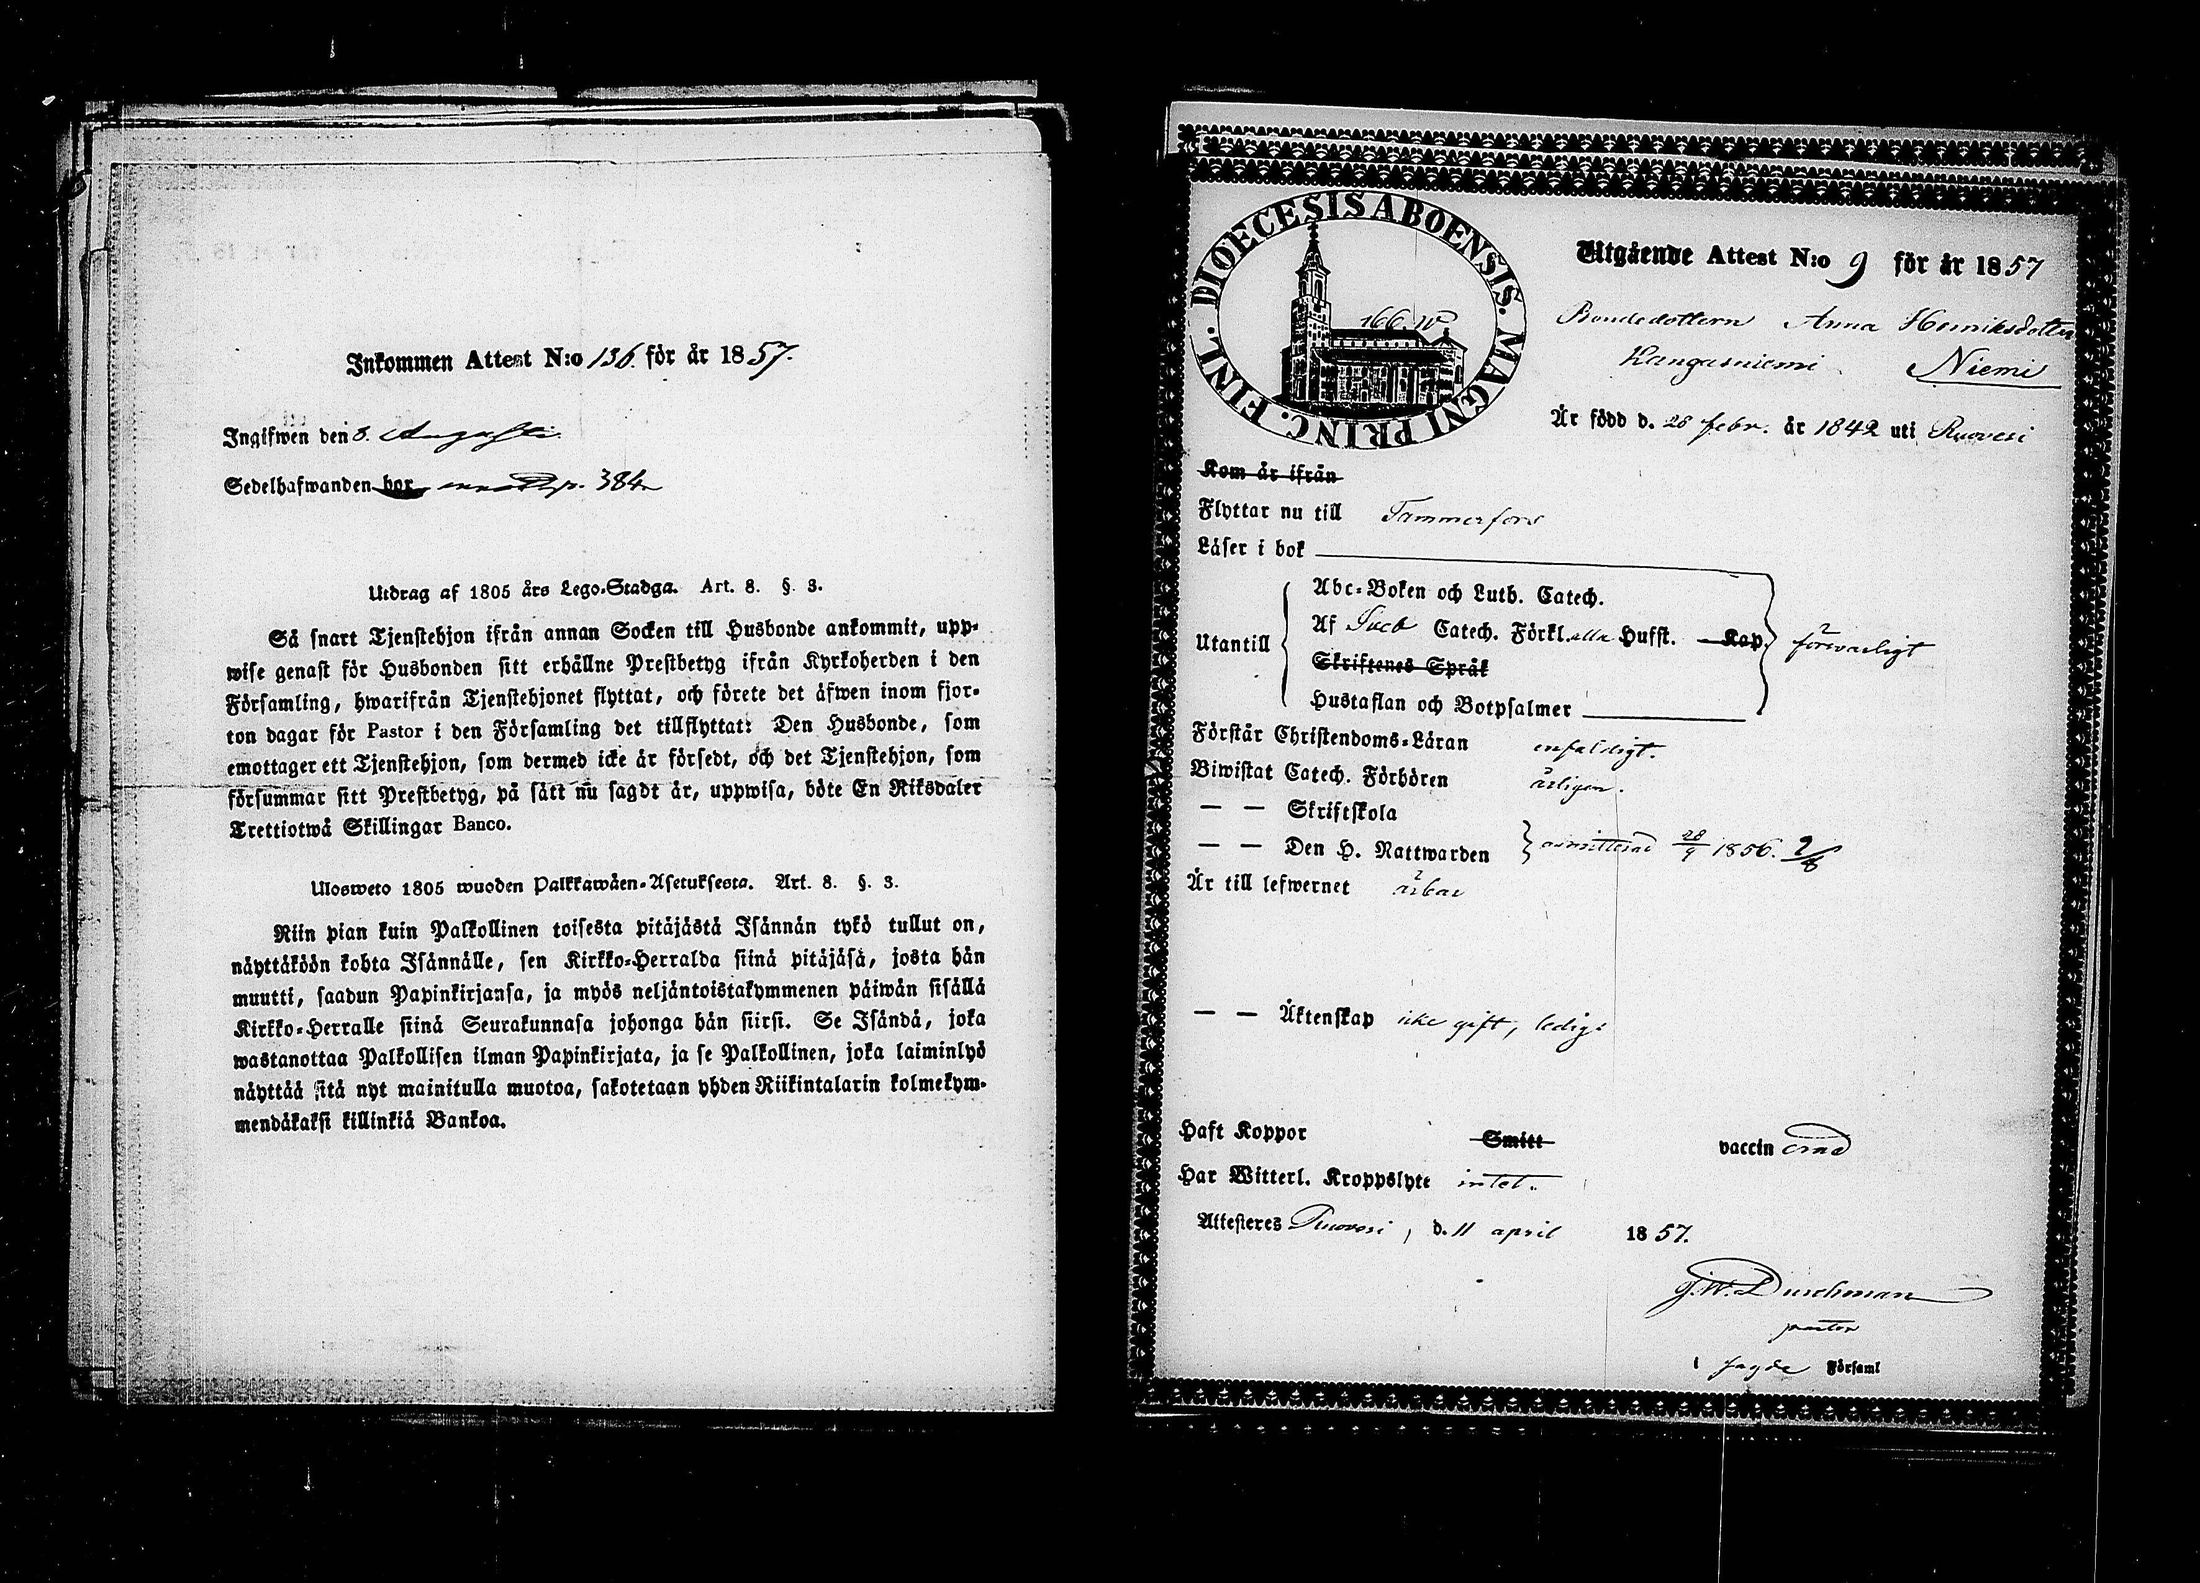 Inkommen Attest N:o 136. för år 1857.
Ingifwen den 8. Augusti
Sedelhafwanden bor p. 384
Utdrag af 1805 års Lego-Stadga. Art. 8. §. 3.
Så snart Tjenstehjon ifrån annan Socken till Husbonde ankommit, upp-
wise genast för Husbonden sitt erhållne Prestbetyg ifrån Kyrkoherden i den
Församling, hwarifrån Tjenstehjonet flyttat, och förete det äfwen inom fjor-
ton dagar för Pastor i den Församling det tillflyttat: Den Husbonde, som
emottager ett Tjenstehjon, som dermed icke är försedt, och det Tjenstehjon, som
försummar sitt Prestbetyg, på sätt nu sagdt är, uppwisa, böte En Riksdaler
Trettiotwå Skillingar Banco.
Ulosweto 1805 wuoden Palkkawäen-Asetuksesta. Art. 8. §. 3.
Niin pian kuin Palkollinen toisesta pitäjästä Isännän tykö tullut on,
näyttäköön kohta Isännälle, sen Kirkko-Herralda siinä pitäjäsä, josta hän
muutti, saadun Papinkirjansa, ja myös neljäntoistakymmenen päiwän sisällä
Kirkko-Herralle siinä Seurakunnasa johonga hän siirsi. Se Isändä, joka
wastanottaa Palkollisen ilman Papinkirjata, ja se Palkollinen, joka laiminlyö
näyttää sitä nyt mainitulla muotoa, sakotetaan yhden Riikintalarin kolmekym-
mendäkaksi killinkiä Bankoa.
DIOECESIS ABOENSIS. MAGNI PRINC. FINL.
166.
Utgående Attest N:o 9 för år 1857
Bondedottern Anna Henriksdotter
Kangasniemi Niemi
Är född d. 28 febr. år 1842 uti Ruovesi
Kom år ifrån
Flyttar nu till Tammerfors
Läser i bok
Utantill
Abc-Boken och Luth. Catech.
Af Sveb Catech. Förkl. alla Hufst. Kap.
Skriftenes Språk
Hustaflan och Botpsalmer
försvarligt
Förstår Christendoms-Läran enfaldigt.
Biwistat Catech. Förhören årligen.
— — Skriftskola
— — Den H. Nattwarden admitterad 28/9 1856. 2/8
Är till lefwernet ärbar
— — Äktenskap icke gift, ledig:
Haft Koppor Smitt vaccinerad
Har Witterl. Kroppslyte intet.
Attesteres Ruovesi, d. 11 april 1857.
J.W. Durchman
pastor
i sagde Församl